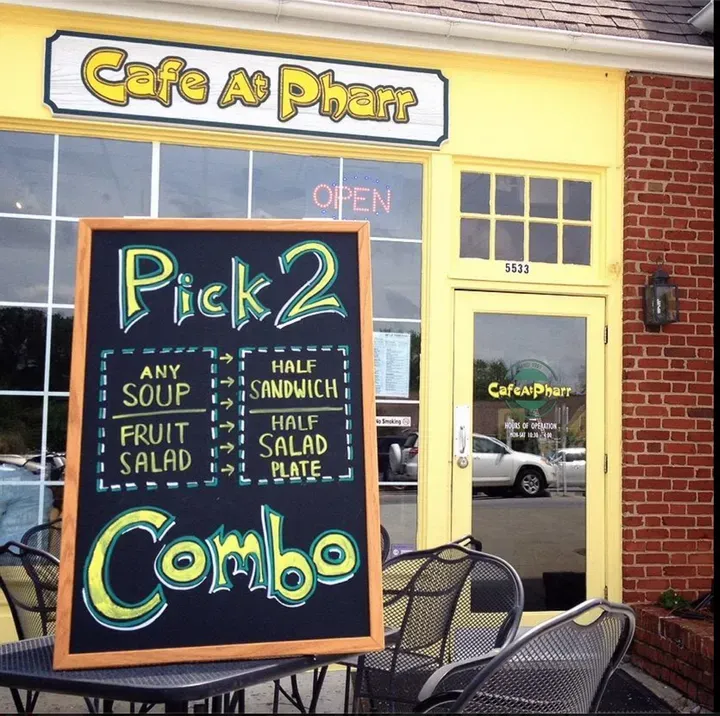 Cafe At Pharr
OPEN
5533
Pick 2
ANY
SOUP
FRUIT
SALAD
HALF
SANDWICH
HALF
SALAD
PLATE
Combo
No Smoking
Cafe At Pharr
HOURS OF OPERATION